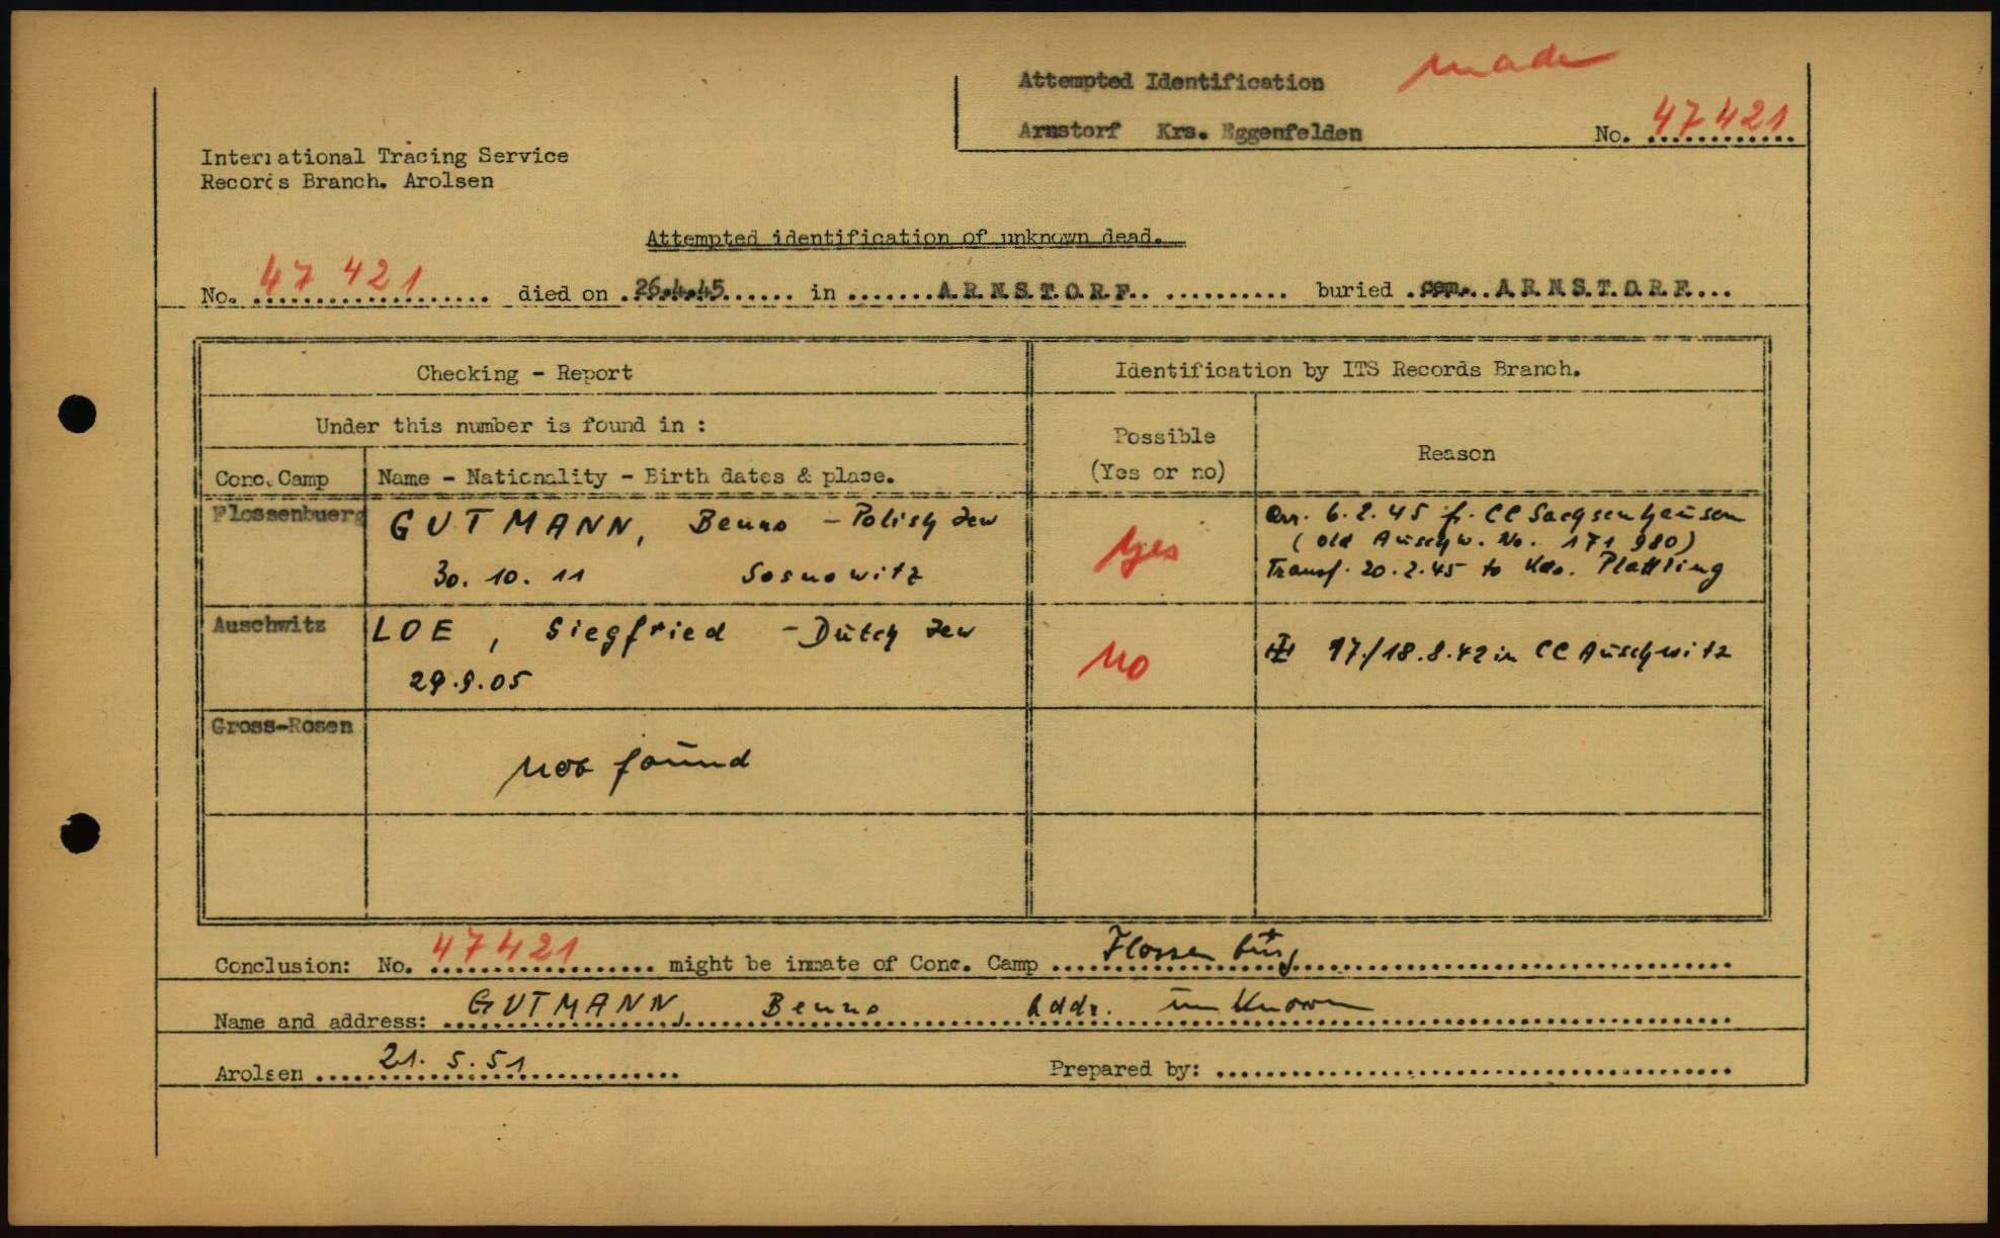 made
Attempted Identification
Arnstorf Krs. Eggenfelden No. 47421
International Tracing Service
Records Branch. Arolsen
Attempted identification of unknown dead.
No. 47 421 died on 26.4.45 in A.R.N.S.T.O.R.F. buried cem. A.R.N.S.T.O.R.F.
Checking - Report
Identification by ITS Records Branch.
Under this number is found in :
Possible
(Yes or no)
Reason
Conc. Camp
Name - Nationality - Birth dates & place.
Flossenbuerg
GUTMANN, Benno - Polish Jew
30. 10. 11 Sosnowitz
Yes
arr. 6.2.45 fr. CC Sachsenhausen
(old Auschw. No. 171 980)
Transf. 20.2.45 to Kdo. Plattling
Auschwitz
LOE, Siegfried - Dutch Jew
29.9.05
No
17./18.8.42 in CC Auschwitz
Gross-Rosen
not found
Conclusion: No. 47421 might be inmate of Conc. Camp Flossenbürg
Name and address: GUTMANN, Benno Addr. unknown
Arolsen 21. 5. 51 Prepared by: